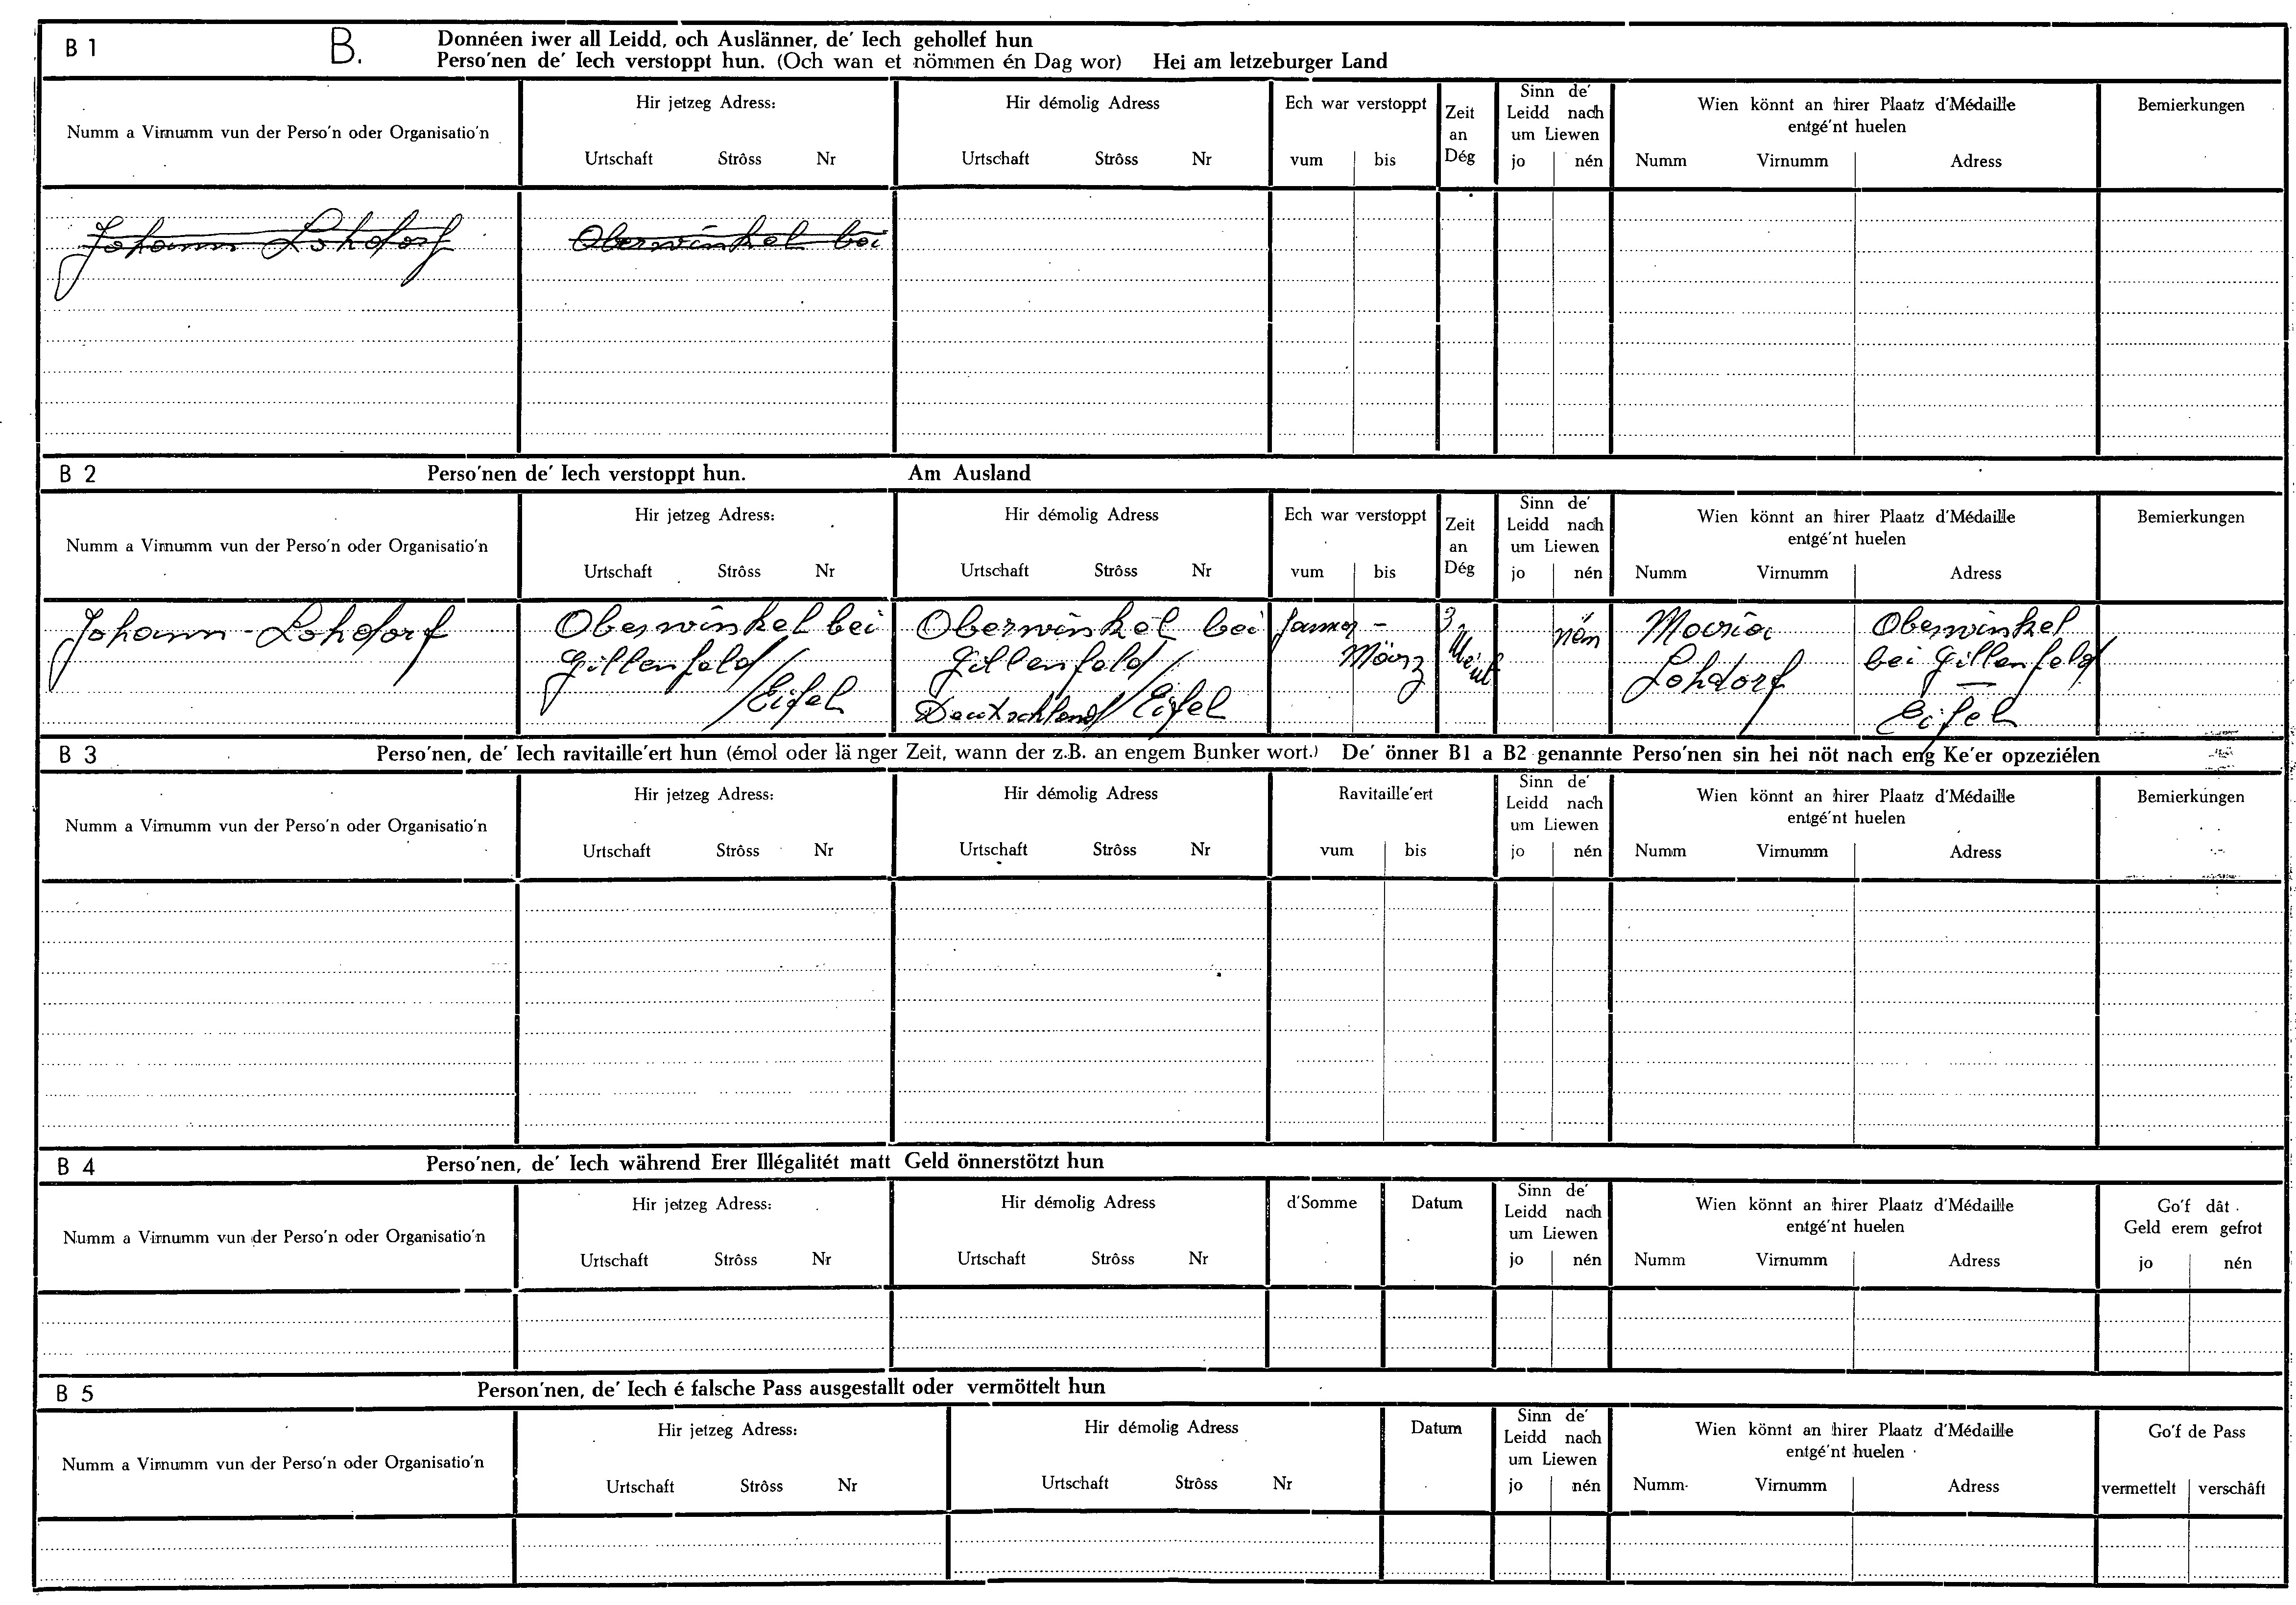 B 1
B.
Donnéen iwer all Leidd, och Auslänner, de' Iech gehollef hun
Perso'nen de' Iech verstoppt hun. (Och wan et nömmen én Dag wor) Hei am letzeburger Land
Numm a Virnumm vun der Perso'n oder Organisatio'n
Hir jetzeg Adress:
Urtschaft Strôss Nr
Hir démolig Adress
Urtschaft Strôss Nr
Ech war verstoppt
vum bis
Zeit
an
Dég
Sinn de'
Leidd nach
um Liewen
jo nén
Wien könnt an hirer Plaatz d'Médaille
entgé'nt huelen
Numm Virnumm Adress
Bemierkungen
Johann Lohdorf Oberwinkel bei
B 2
Perso'nen de' Iech verstoppt hun. Am Ausland
Numm a Virnumm vun der Perso'n oder Organisatio'n
Hir jetzeg Adress:
Urtschaft Strôss Nr
Hir démolig Adress
Urtschaft Strôss Nr
Ech war verstoppt
vum bis
Zeit
an
Dég
Sinn de'
Leidd nach
um Liewen
jo nén
Wien könnt an hirer Plaatz d'Médaille
entgé'nt huelen
Numm Virnumm Adress
Bemierkungen
Johann - Lohdorf
Oberwinkel bei
Gillenfeld/
/Eifel
Oberwinkel bei
Gillenfeld/
Deutschland/Eifel
-
März
3
nén
Maria
Lohdorf
Oberwinkel
bei Gillenfeld
Eifel
B 3
Perso'nen, de' Iech ravitaille'ert hun (émol oder länger Zeit, wann der z.B. an engem Bunker wort.) De' önner B1 a B2 genannte Perso'nen sin hei nöt nach eng Ke'er opzeziélen
Numm a Virnumm vun der Perso'n oder Organisatio'n
Hir jetzeg Adress:
Urtschaft Strôss Nr
Hir démolig Adress
Urtschaft Strôss Nr
Ravitaille'ert
vum bis
Sinn de'
Leidd nach
um Liewen
jo nén
Wien könnt an hirer Plaatz d'Médaille
entgé'nt huelen
Numm Virnumm Adress
Bemierkungen
B 4
Perso'nen, de' Iech während Erer Illégalitét matt Geld önnerstötzt hun
Numm a Virnumm vun der Perso'n oder Organisatio'n
Hir jetzeg Adress:
Urtschaft Strôss Nr
Hir démolig Adress
Urtschaft Strôss Nr
d'Somme
Datum
Sinn de'
Leidd nach
um Liewen
jo nén
Wien könnt an hirer Plaatz d'Médaille
entgé'nt huelen
Numm Virnumm Adress
Go'f dât
Geld erem gefrot
jo nén
B 5
Person'nen, de' Iech é falsche Pass ausgestallt oder vermöttelt hun
Numm a Virnumm vun der Perso'n oder Organisatio'n
Hir jetzeg Adress:
Urtschaft Strôss Nr
Hir démolig Adress
Urtschaft Strôss Nr
Datum
Sinn de'
Leidd nach
um Liewen
jo nén
Wien könnt an hirer Plaatz d'Médaille
entgé'nt huelen
Numm Virnumm Adress
Go'f de Pass
vermettelt verschâft